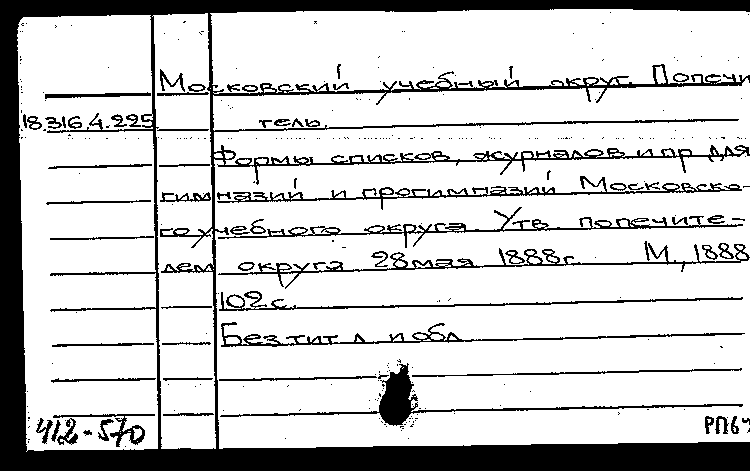 Московский учебный округ. Попечи
18.316.4.225 тель.
Формы списков, журналов и пр для
гимназий и прогимназий Московско-
го учебного округа. Утв попечите-
лем округа 28 мая 1888 г. М., 1888
102 с.
Без тит л и обл
412-570
РПб